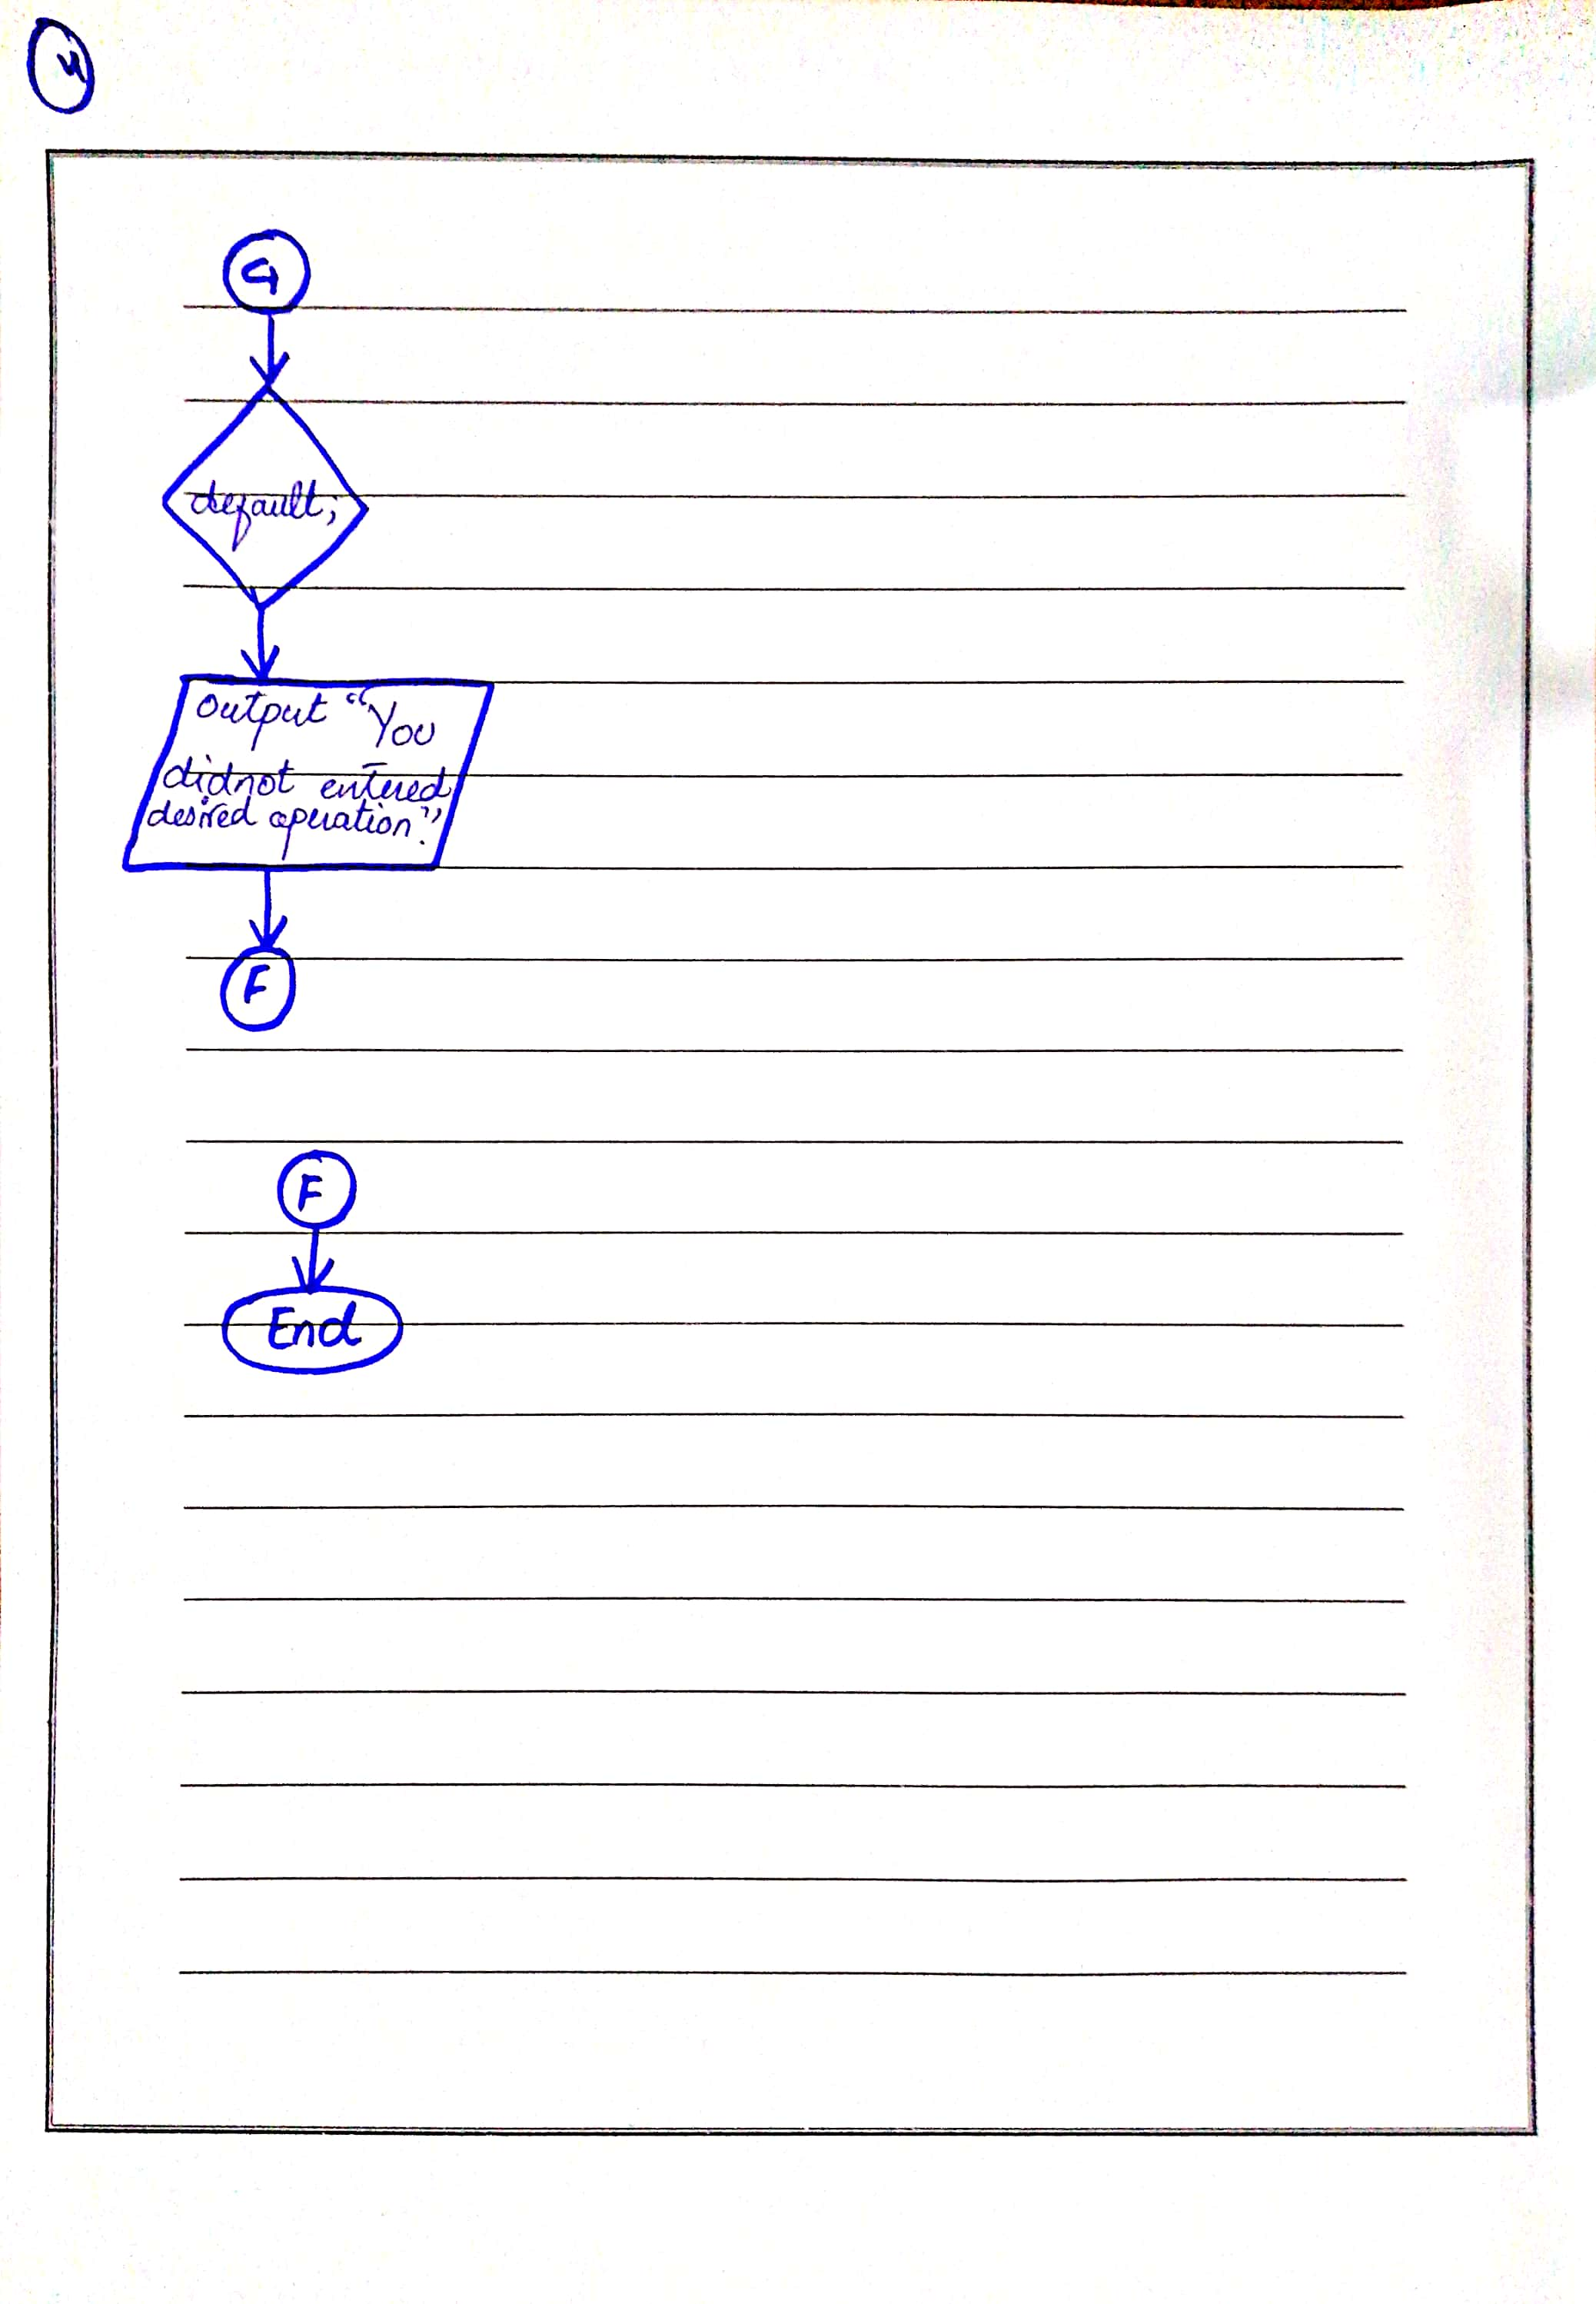 4
G
default;
Output "You
didnot entered
desired operation."
F
F
End